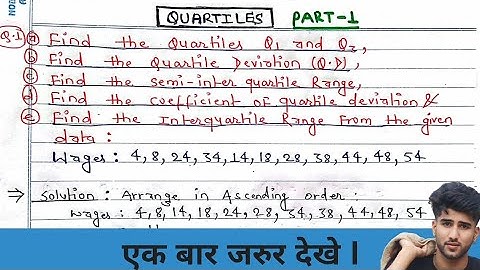 QUARTILES PART-1
Q.1 (a) Find the Quartiles Q1 and Q3,
(b) Find the Quartile Deviation (Q.D),
(c) Find the semi-inter quartile Range,
(d) Find the coefficient of quartile deviation &
(e) Find the Interquartile Range from the given
data:
Wages: 4, 8, 24, 34, 14, 18, 28, 38, 44, 48, 54
→ Solution: Arrange in Ascending order:
Wages: 4, 8, 14, 18, 24, 28, 34, 38, 44, 48, 54
एक बार जरुर देखे ।